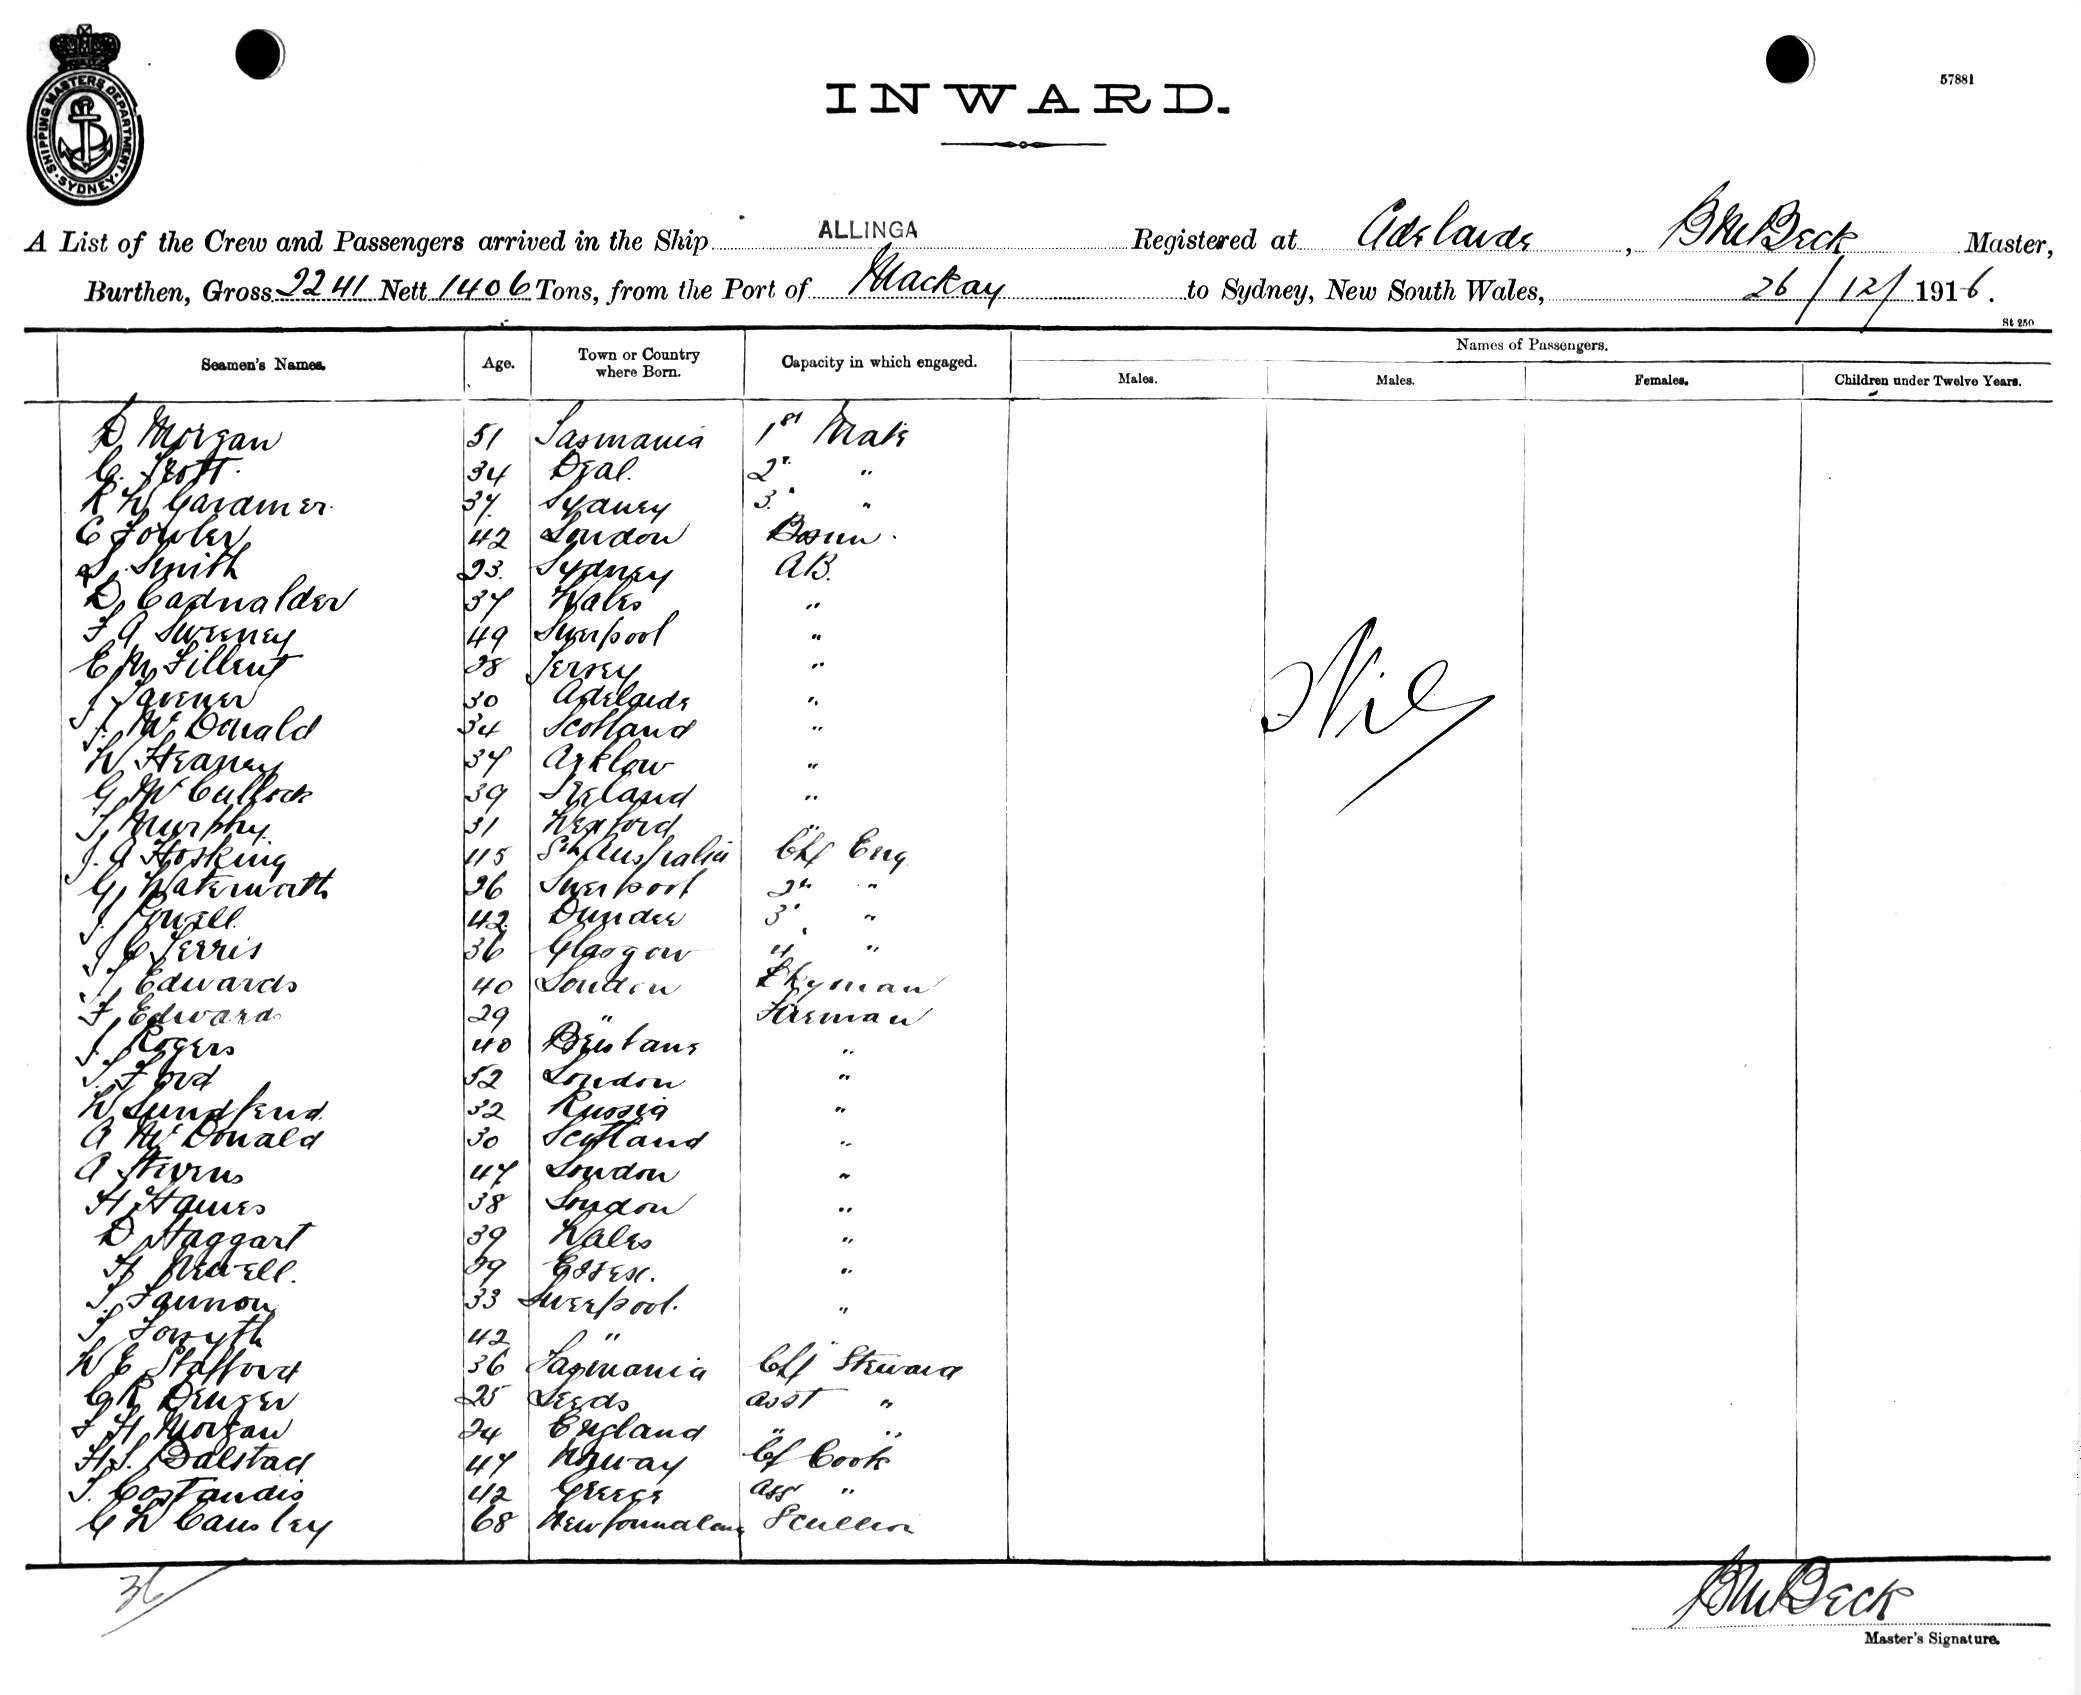 SHIPPING MASTERS DEPARTMENT. SYDNEY.
57881
INWARD.
A List of the Crew and Passengers arrived in the Ship ALLINGA Registered at Adelaide, B McBeck Master,
Burthen, Gross 2241 Nett 1406 Tons, from the Port of Mackay to Sydney, New South Wales, 26/12/1916.
St 250
Seamen's Names. Age. Town or Country where Born. Capacity in which engaged. Names of Passengers.
Males. Males. Females. Children under Twelve Years.
D Morgan 51 Tasmania 1st Mate
C. Trott. 34 Deal. 2" "
R W Gardiner. 37. Sydney 3" "
C Fowler 42 London Bosun.
S Smith 23. Sydney AB.
D Cadwalder 37 Wales "
F A Sweeney 49 Liverpool "
E M Fillent 28 Jersey "
J Tavener 30 Adelaide "
J. McDonald 34 Scotland "
W Heaney 37 Arklow "
G McCullock 39 Ireland "
T Murphy. 31 Wexford "
J. A Hosking 45 Sth Australia Chf Eng.
G Waterworth 26 Liverpool 2n "
J. Powell. 42. Dundee 3" "
J C Ferris 36 Glasgow 4 "
T Edwards 40 London Dkyman
F Edward 29 " Fireman
J. Rogers 40 Brisbane "
T. Ford 52 London "
W 32 Russia "
A McDonald 30 Scotland "
A Stevens 47 London "
H Hawes 38 London "
D Haggart 39 Wales "
H Newell. 29 Essex. "
T. Fannon 33 Liverpool. "
T Forsyth 42 " "
W E Stafford 36 Tasmania Chf Steward
C R Denzer 25 Leeds Asst "
F H Morgan 24 England " "
H S. Balstad 47 Norway Cf Cook
T. Costandis 42 Greece Ass "
C W Causley 68 Newfoundland Scullion
Nil
36
B McBeck
Master's Signature.